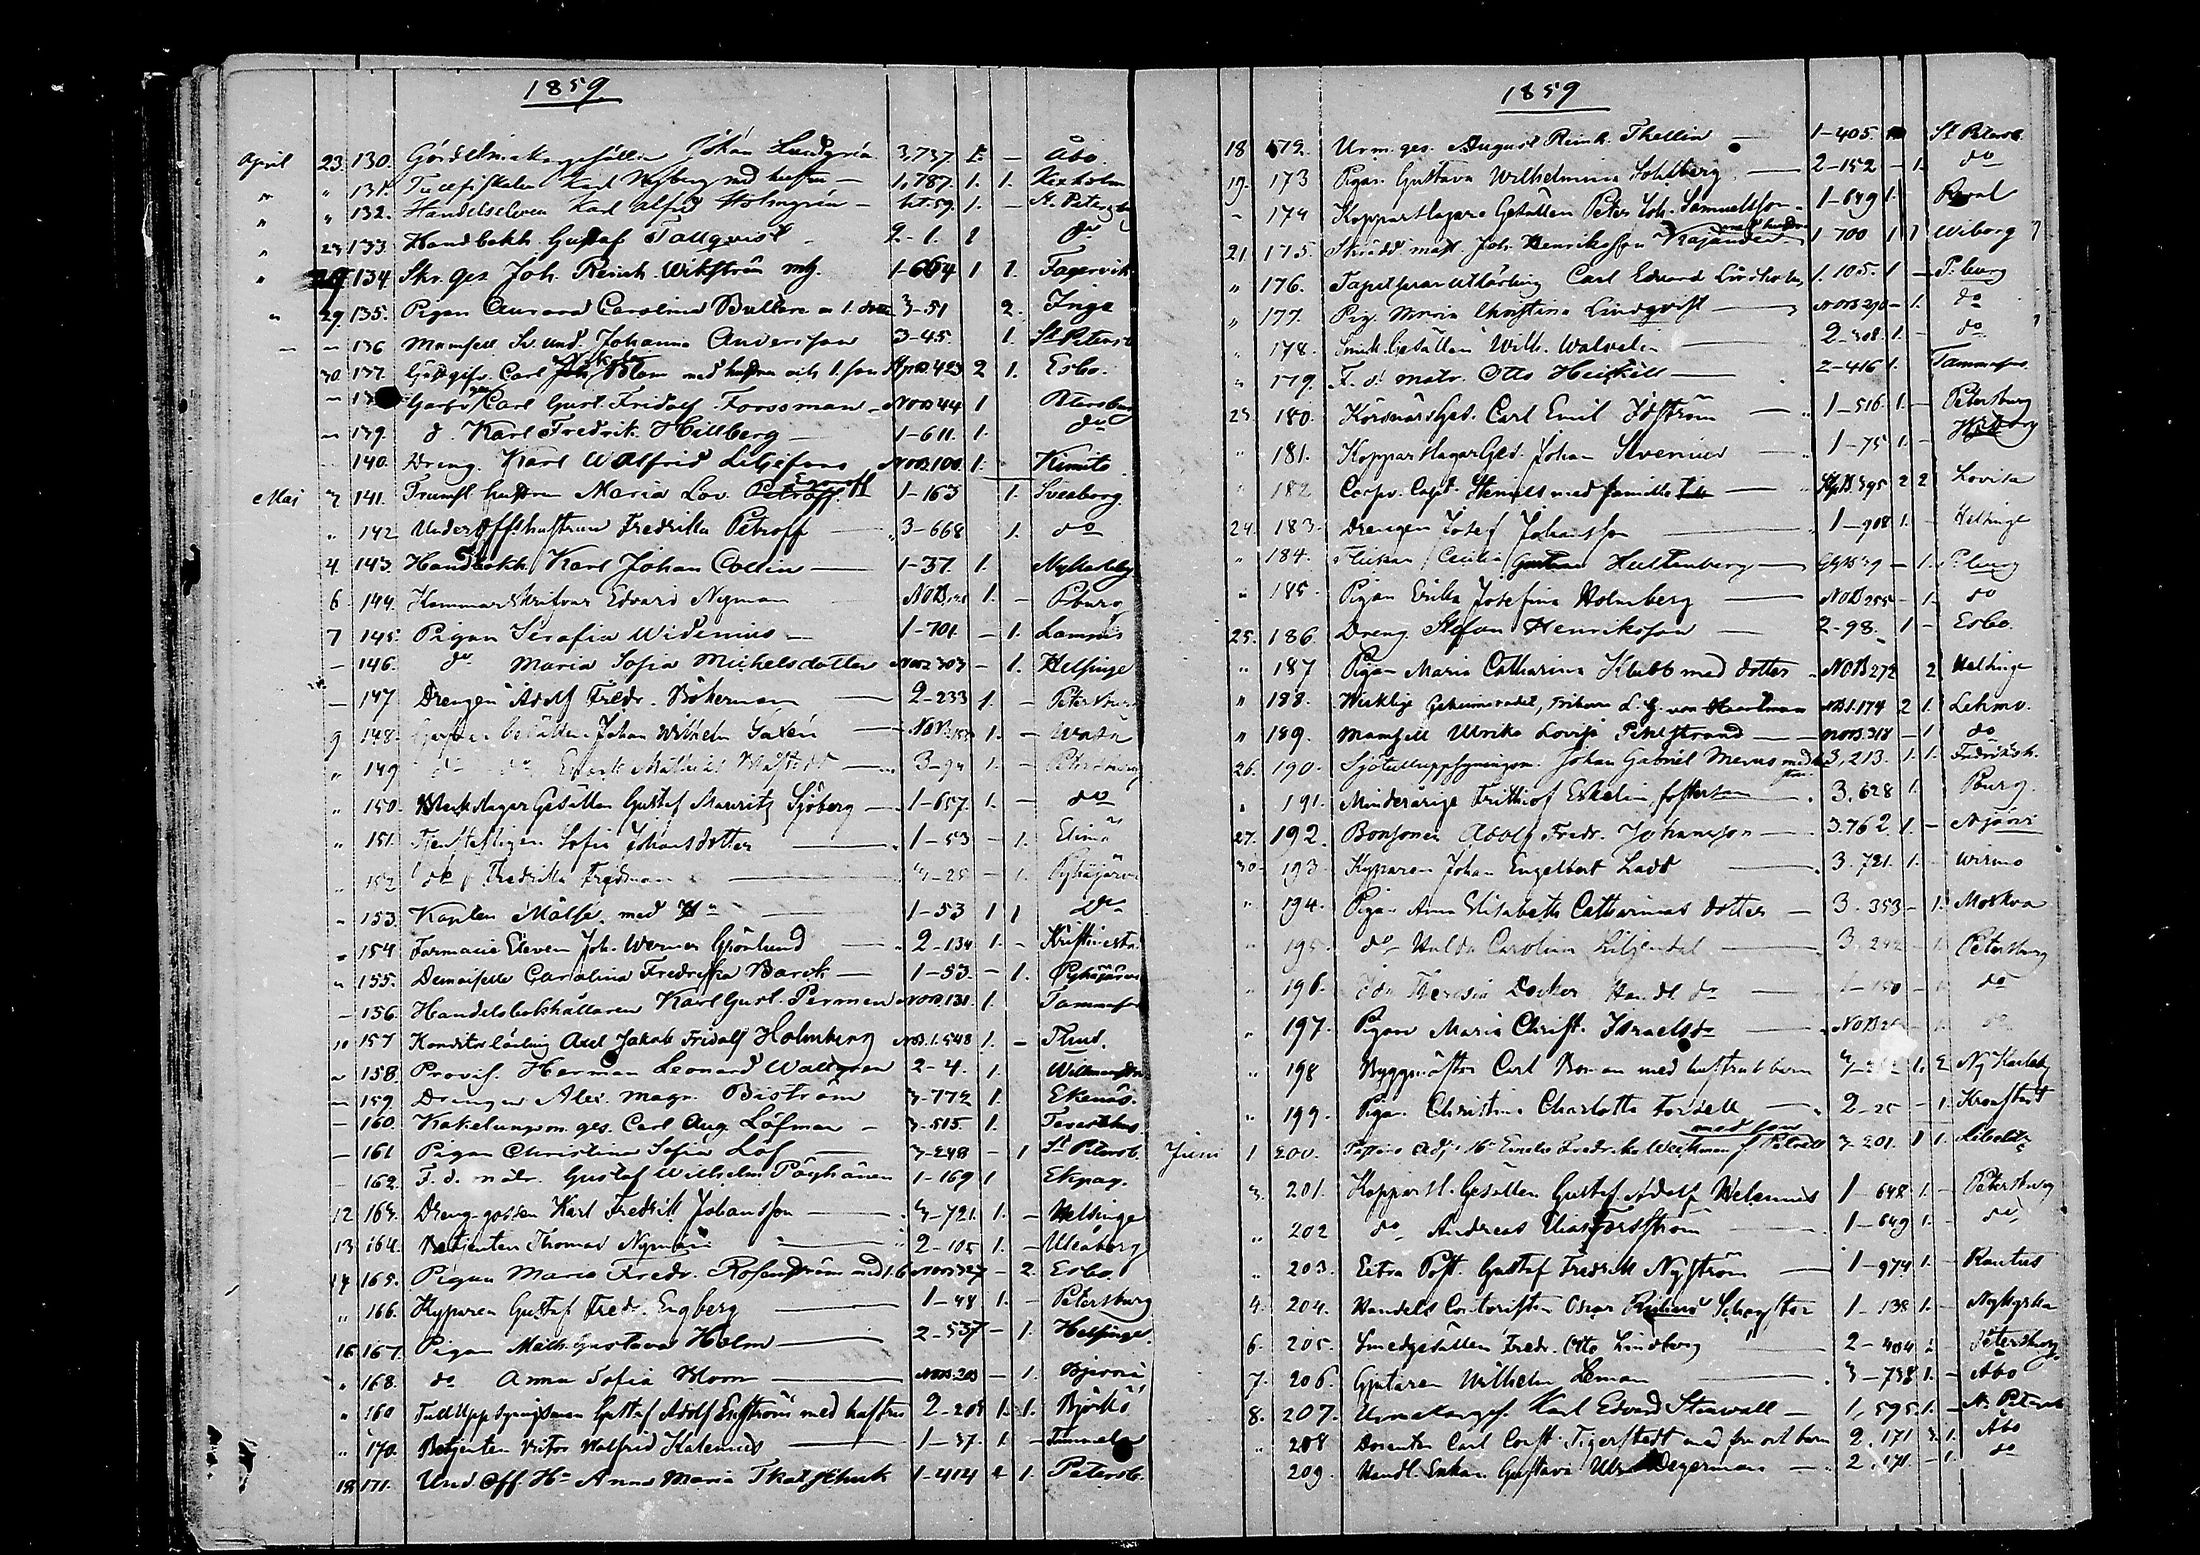 1859
April 23. 130. Gördelmakaregesällen Johan Lundgrén 3,737. 1. — Åbo.
" " 131. Tullfiskalen Karl Nyberg med hustru — 1,787. 1. 1. Kexholm
" " 132. Handelseleven Karl Alfred Holmgrén — 1. — St. Petersb
" 23 133. Handbokh. Gustaf Tallqvist 2-1. 1 do
" 134. Skr. ges. Joh. Reinh. Wikström mh. 1-664 1 1. Fagervik
" 29. 135. Pigan Aurora Carolina m 1. dotter 3-51 2. Inga
— — 136 Mamsell Johanna Andersson 3-45. 1. St Petersb
30. 137. Carl Blom med hustru och 1. son 423 2 1. Esbo.
— Karl Gust. Fridolf Forssman NoB 44 1 Petersburg
— 139. d. Karl Fredrik Hillberg — 1-611. 1. do
140. Dreng. Karl Walfrid Liljefors NoB.100. 1. Kimito
Maj 3 141. hustrun Maria Lov. 1-163 1. Sveaborg.
" 142 Underoff.hustrun Fredrika Petroff 3-668 1. do
4. 143. Handbokh. Karl Johan Collin — 1-37. 1. Nykarleby
6. 144. Kammarskrifvar Edvard Nyman NoB 1. — Pburg
7 145. Pigan Serafia Widenius — 1-701. — 1. Lammis
— 146. do Maria Sofia Michelsdotter NoB 303 — 1. Helsinge
— 147. Drengen Adolf Fredr. Bökerman — 2-233 1. — Petersburg
9. 148. Gesällen Johan Wilhelm Saxén — NoB 1. — Wasa
" 149. 3-94 1. — Petersburg
" 150. Gesällen Gustaf Mauritz Sjöberg — 1-657. 1. — do
" 151. Sofia Johansdotter — 1-53 — 1. Elimä
" 152 do Fredrika Fredman — 3-25 — 1. Pyhäjärvi
" 153. Kapten Mälfe med — 1-53 1 1 do
" 154 Farmacie Eleven Joh. Werner Grönlund — 2-134 1. — Kristinestad
" 155. Demoiselle Carolina Fredrika Barck — 1-53. — 1. Pyhäjärvi
— 156. Handelsbokhållaren Karl Gust. Permen NoB.131. 1. Tammerfors
" 157 Konditor lärling Axel Jakob Fridolf Holmberg NoB.1.548 1. —
" 158. Provis. Herman Leonard Wallgren 2-4. 1. Willmanstrand
— 159. Drengen Alex. Magn. Biström 3-772 1. Ekenäs.
— 160. Kakelungsm. ges. Carl Aug. Löfman — 3-515. 1. Tavasthus
— 161 Pigan Christina Sofia Löf — 3-248 — 1 St Petersb.
— 162. F. d. matr. Gustaf Wilhelm Päyhänen 1-169 1 Ekpag.
12 163. Dreng gossen Karl Fredrik Johansson — 3-721. 1. — Helsinge
13 164. Betjenten Thomas Nyman — 2-105 1. — Uleåborg
14 165. Pigan Maria Fredr. Rosenström med 1. b NoB 327 — 2. Esbo.
" 166. Kyparen Gustaf Fredr. Engberg — 1-48 1. — Petersburg
16. 167. Pigan Math. Gustava Holm — 2-537 — 1. Helsinge.
" 168. do Anna Sofia Blom — NoB.203 — 1. Bjernå
" 160 Tulluppsyningsman Gustaf Adolf Enström med hustru 2-208 1. 1. Björkö
" 170. Betjenten Victor Walfrid Kalenius — 1-37. 1. —
18 171. Und Off Hu Anna Maria 1-414 2 1. Petersb.
1859
18 172. Urm. ges. August Reinh. Thellin — 1-405. St Petersb.
19. 173 Pigan Gustava Wilhelmina Sohlberg — 2-152 — 1. do
— 174 Kopparslagare Gesällen Peter Joh. Samuelsson — 1-649 1. Reval
21 175. Skrädd mast. Joh. Henriksson Kajander med hustru 1-700 1 1 Wiborg
" 176. Carl Edvard 1.105. 1 — P.burg
" 177. Pig. Maria Christina Lindqvist — NoB 290 — 1. do
" 178. Smed. Gesällen Wilh. — 2-308. 1. — do
" 179. F. d. matr. Otto Heikell — 2-416 1. Tammerfors
23 180. Körsnärs Ges. Carl Emil Idström — 1-516 1. — Petersburg
" 181. Kopparslagar Ges. Johan Svenius — 1-75 1. —
" 182 Corps. Capt. med familie — 395 2 2 Lovisa
24. 183. Drengen Josef Johansson — 1-908 1. — Helsinge
" 184. Flickan Cecilia Hultenberg — — 1. P.burg
" 185. Pigan Erika Josefina Holmberg — NoB 255 — 1. do
25. 186. Dreng Stefan Henriksson — 2-98. 1 — Esbo.
" 187 Pigan Maria Catharina Klubb med dotter NoB 272 2 Helsinge
" 188. Wirklige Geheimerådet, Friherre L. G. von Haartman NoB.1.174 2 1. Lehmo.
" 189. Mamsell Ulrika Lovisa — NoB.318 — 1 do
26. 190. Sjötulluppsyningsm. Johan Gabriel 3,213. 1. 1. Fredriksh.
" 191. Minderårige Frithiof Eskelin fosterson 3.628 1. Pburg.
27. 192. Bonsonen Adolf Fredr. Johansson — 3.762 1. —
30. 193. Kyparen Johan Engelbert Ladt — 3.721. 1. — Wirmo
" 194. Pigan Anna Elisabeth Catharinas dotter — 3.353 — 1. Moskva
" 195. do Hulda Carolina Liljendal — 3.242 — 1. Petersburg
" 196. Ida Theresia 1-150 — 1. do
" 197. Pigan Maria Christ. Israelsdr — NoB — 1. do
" 198 Byggmäster Carl Boman med hustru barn 1. 2 Ny Karleby
" 199. Pigan Christina Charlotta Fordell — 2-25 — 1. Kronstadt
Juni 1 200. Emelie Fredrika Weckman med son 3-201. 1 1. Libelits
3. 201. Kopparsl. Gesällen Gustaf Adolf Welenius 1-648 1. — Petersburg
" 202 do Andreas Elias Forsström 1-649 1. — do
" 203. Extra Post. Gustaf Fredrik Nyström — 1-974 1. — Rautus
4. 204. Handels Contoristen Oscar 1-138 1. — Nykyrka
6. 205. Smedgesällen Fredr. Otto Lindberg 2-404 2 Petersburg
7. 206. Gjutaren Wilhelm Leman — 3-738 1. — Åbo
8. 207. Urmakarges. Karl Edvard Stenwall — 1,595. 1. — St. Petersb
" 208 Docenten Carl Const. Tigerstedt med fru och barn 2.171 3. 1. Åbo
209. Handl. Enkan Gustava Degerman — 2.171. — 1. do